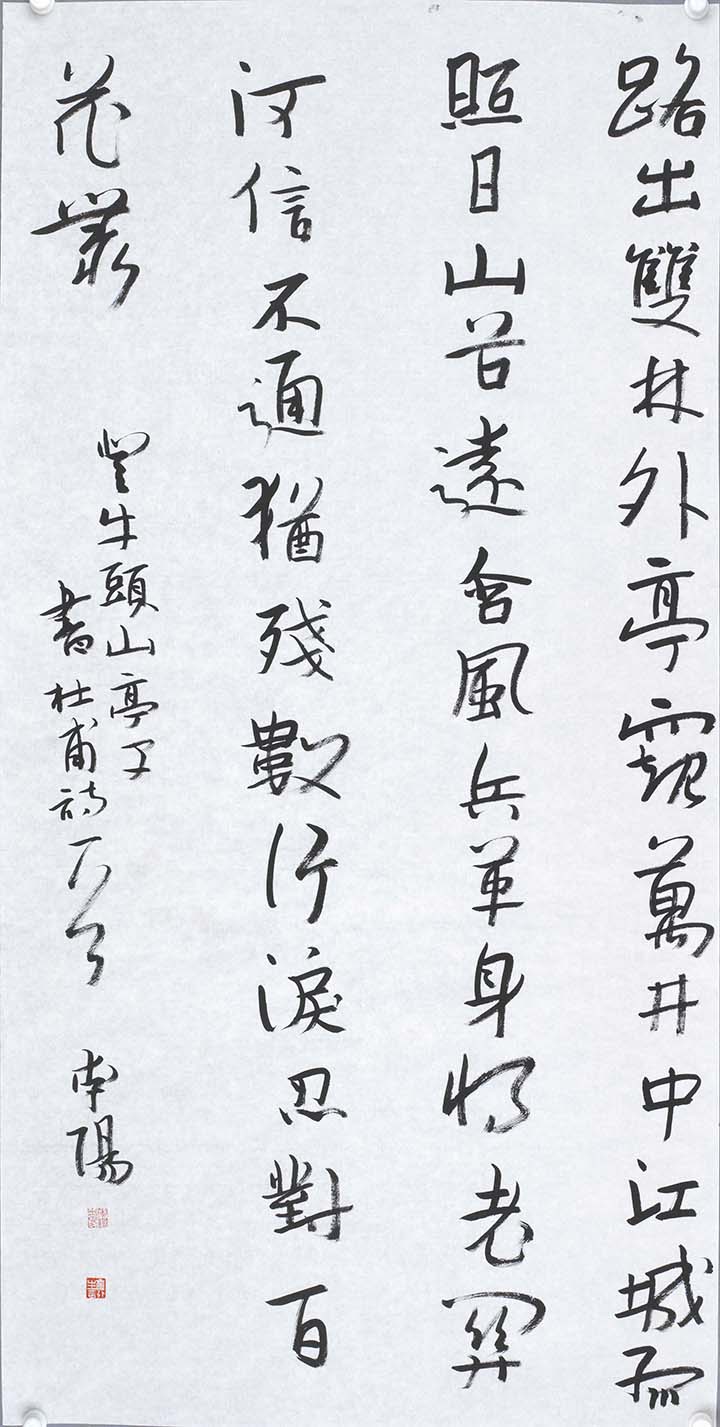 路出雙林外亭窺萬井中江城孤
照日山谷遠含風兵革身將老關
河信不通猶殘數行淚忍對百
花叢
登牛頭山亭子
書杜甫詩
南陽